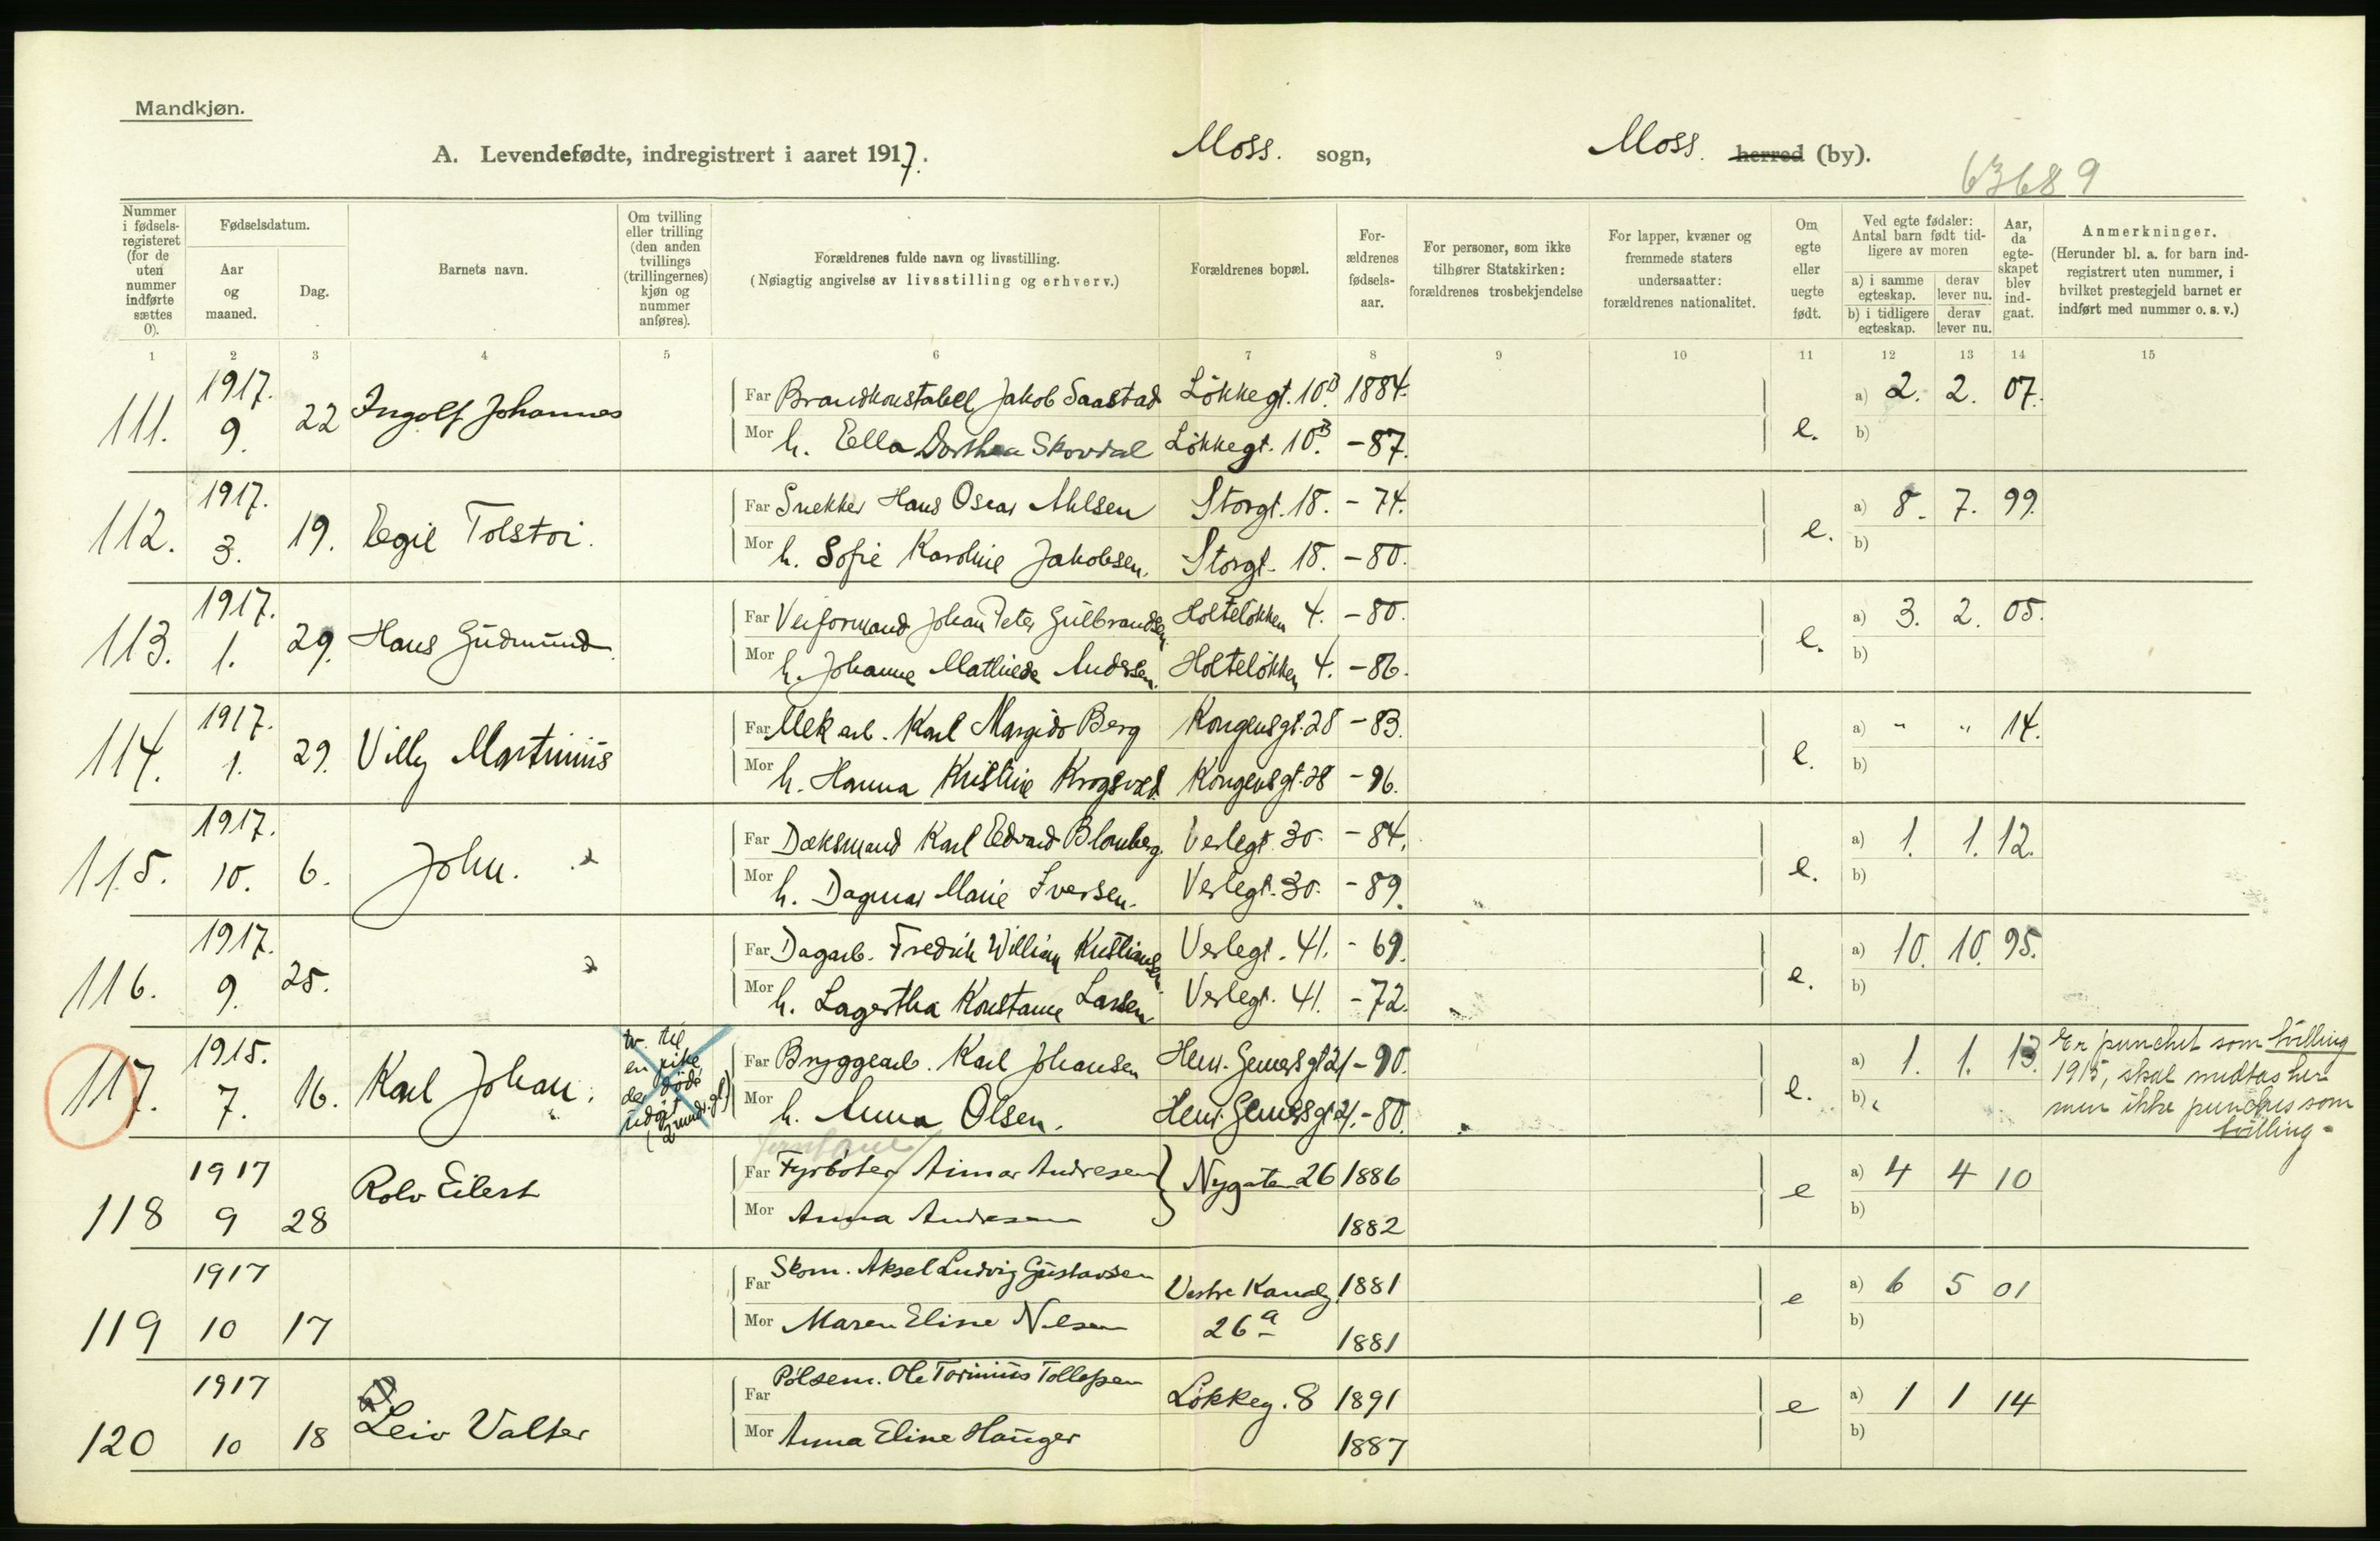 Mandkjøn.
A. Levendefødte, indregistrert i aaret 1917. Moss. sogn, Moss. herred (by).
63689
Nummer i fødsels-registeret (for de uten nummer indførte sættes 0).
Fødselsdatum.
Aar og maaned.
Dag.
Barnets navn.
Om tvilling eller trilling (den anden tvillings (trillingernes) kjøn og nummer anføres).
Forældrenes fulde navn og livsstilling.
(Nøiagtig angivelse av livsstilling og erhverv.)
Forældrenes bopæl.
For-ældrenes fødsels-aar.
For personer, som ikke tilhører Statskirken: forældrenes trosbekjendelse
For lapper, kvæner og fremmede staters undersaatter: forældrenes nationalitet.
Om egte eller uegte født.
Ved egte fødsler: Antal barn født tid-ligere av moren
a) i samme egteskap.
derav lever nu.
b) i tidligere egteskap.
derav lever nu.
Aar, da egte-skapet blev ind-gaat.
Anmerkninger.
(Herunder bl. a. for barn ind-registrert uten nummer, i hvilket prestegjeld barnet er indført med nummer o. s. v.)
1 2 3 4 5 6 7 8 9 10 11 12 13 14 15
111. 1917. 9. 22 Ingolf Johannes
Far Brandkonstabel Jakob Saastad Løkkegt. 10B. 1884.
Mor h. Ella Dorthea Skovdal Løkkegt. 10B. -87.
e. a) 2. 2. 07.
b)
112. 1917. 3. 19. Egil Tolstoi.
Far Snekker Hans Oscar Ahlsen Storgt. 18. - 74.
Mor h. Sofie Karoline Jakobsen. Storgt. 18. - 80.
e. a) 8. 7. 99.
b)
113. 1917. 1. 29. Hans Gudmund
Far Veiformand Johan Peter Gulbrandsen. Holteløkken 4. - 80.
Mor h. Johanne Mathilde Andersen. Holteløkken 4. - 86.
e. a) 3. 2. 05.
b)
114. 1917. 1. 29. Villy Martinius
Far Mek arb. Karl Margido Berg Kongensgt. 28 - 83.
Mor h. Hanna Kristine Krogsvold. Kongensgt. 28 - 96.
e. a) " " 14.
b)
115. 1917. 10. 6. John.
Far Dæksmand Karl Edvard Blomberg. Verlegt. 30. - 84.
Mor h. Dagmar Marie Iversen. Verlegt. 30. - 89.
e. a) 1. 1. 12.
b)
116. 1917. 9. 25.
Far Dagarb. Fredrik William Kristiansen. Verlegt. 41. - 69.
Mor h. Lagertha Konstance Larsen Verlegt. 41. - 72.
e. a) 10. 10. 95.
b)
117. 1915. 7. 16. Karl Johan.
tv. til
en pike
der døde
udøpt
(2 mndr. gl)
Far Bryggearb. Karl Johansen Henr. Gerners gt 21 - 90.
Mor h. Anna Olsen. Henr. Gerners gt 21. - 80.
e. a) 1. 1. 13.
b)
Er punchet som tvilling
1915, skal medtas her
men ikke punches som
tvilling.
118 1917 9 28 Rolv Eilert
Far Fyrbøter Aimar Andresen Nygaten 26 1886
Mor Anna Andresen 1882
e a) 4 4 10
b)
119 1917 10 17
Far Skom. Aksel Ludvig Gustavsen Vestre Kanalg. 1881
Mor Maren Eline Nilsen 26a 1881
e a) 6 5 01
b)
120 1917 10 18 Leiv Valter
Far Pølsem. Ole Torinius Tollefsen Løkkeg. 8 1891
Mor Anna Eline Hauger 1887
e a) 1 1 14
b)